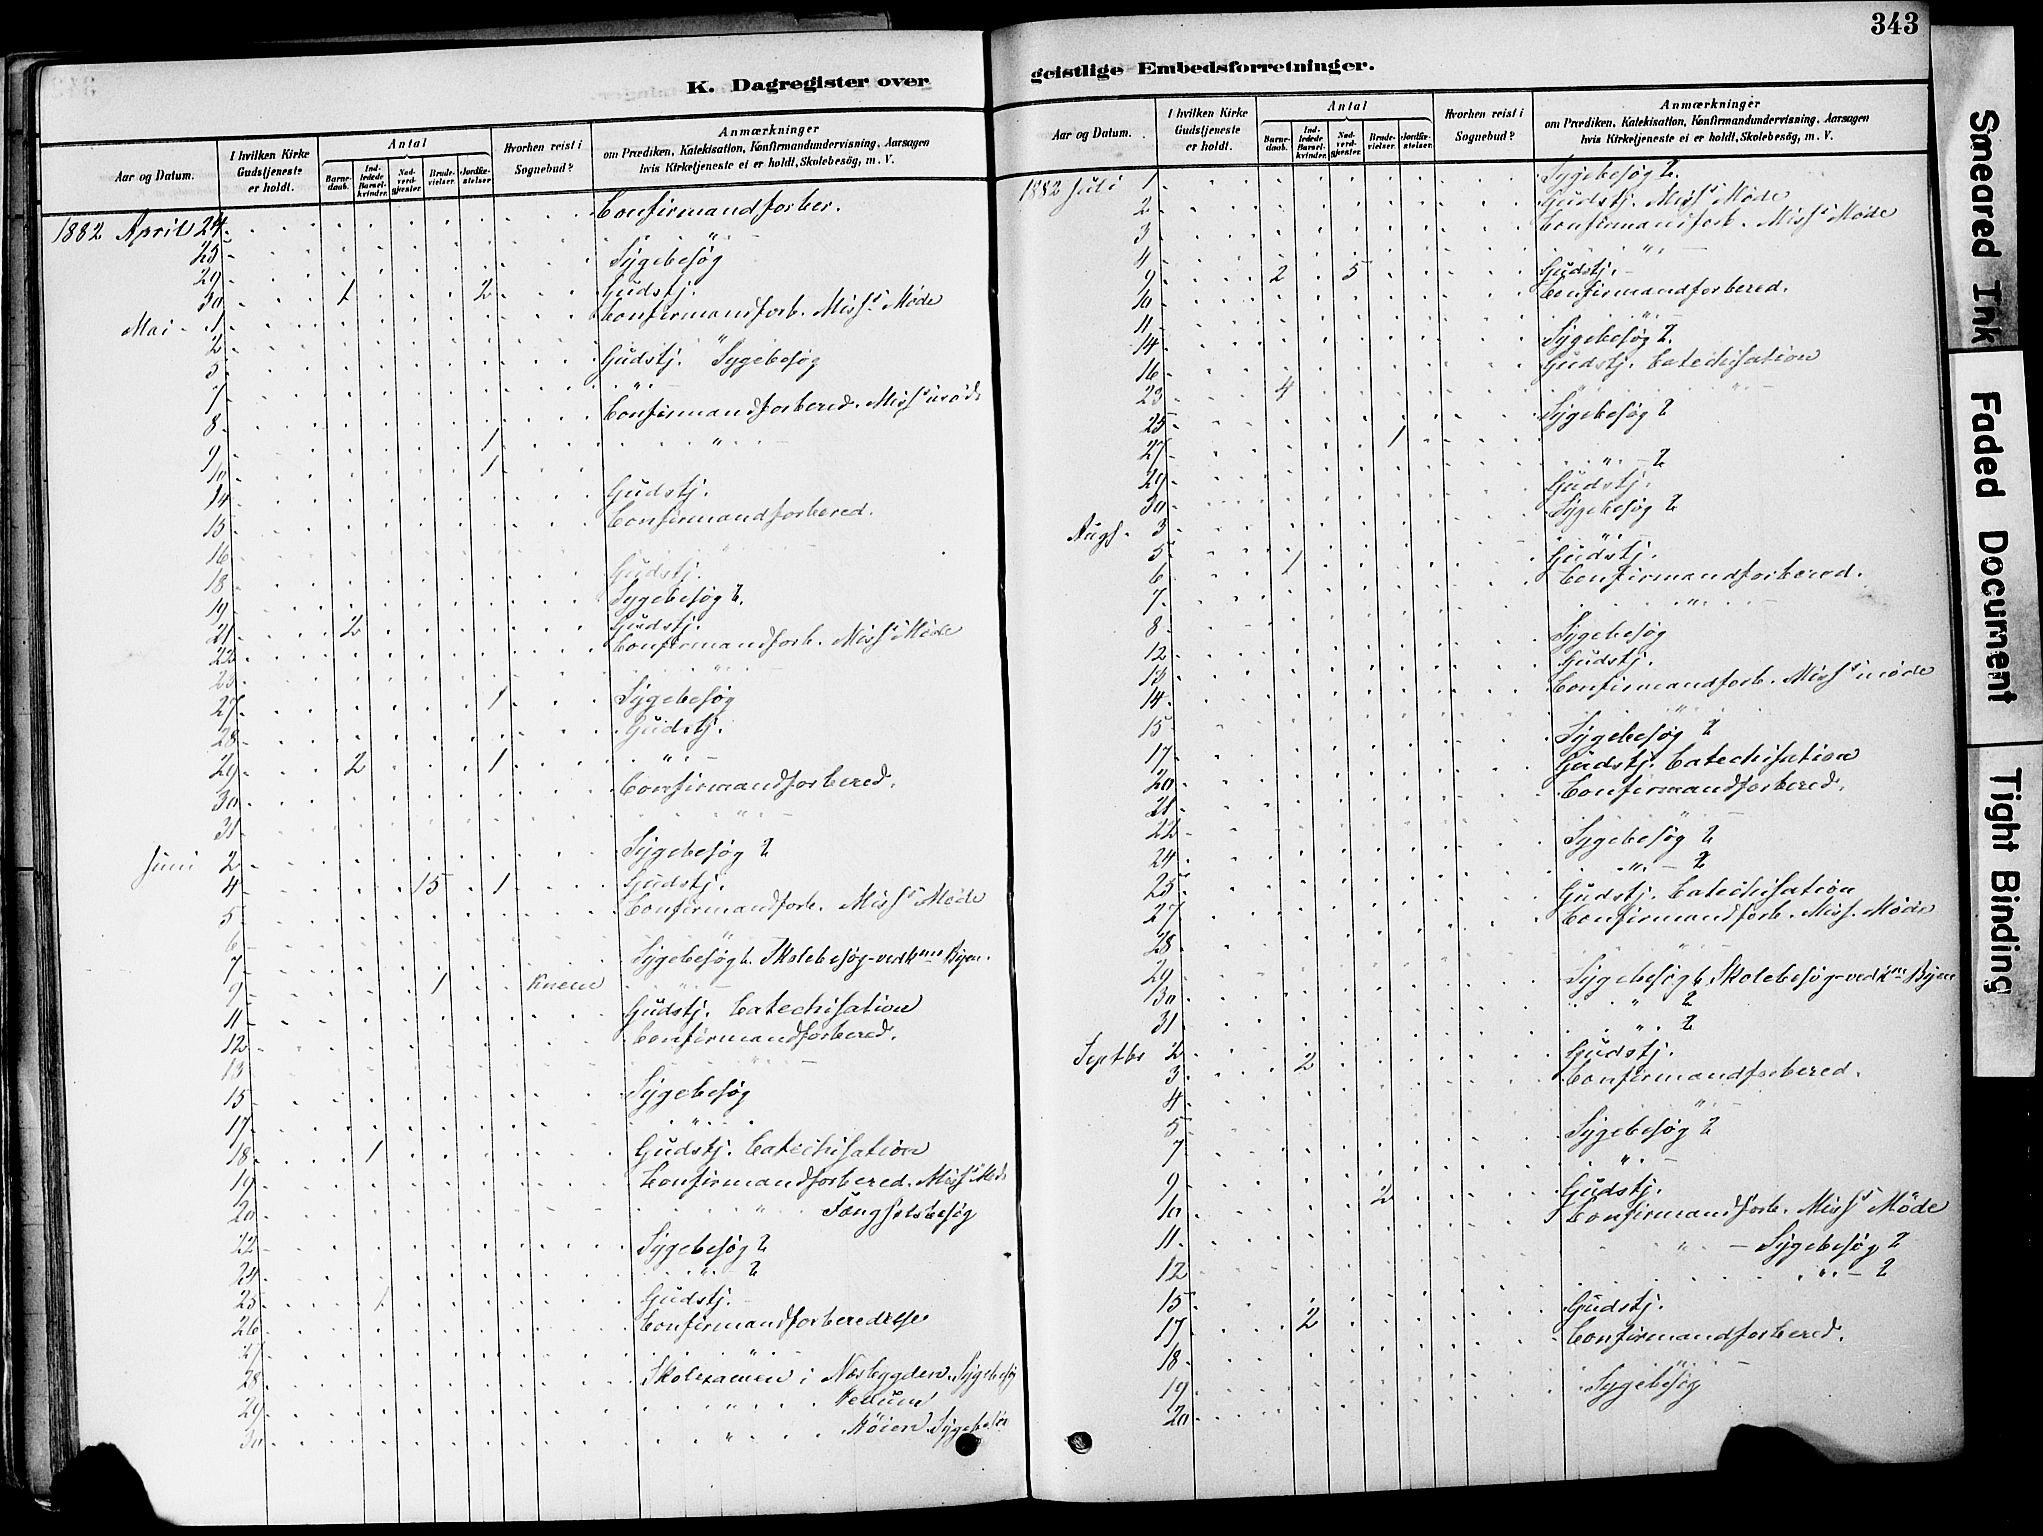 343
K. Dagregister over
Aar og Datum.
I hvilken Kirke Gudstjeneste er holdt.
Antal
Barne-daab.
Ind-ledede Barsel-kvinder.
Nad-verd-gjester.
Brude-vielser.
Jordfæ-stelser.
Hvorhen reist i Sognebud?
Anmærkninger
om Prædiken, Katekisation, Konfirmandundervisning, Aarsagen
hvis Kirketjeneste ei er holdt, Skolebesög, m. V.
1882 April 24 Confirmandforber.
25 "
29 Sygebesøg
30 1 2 Gudstj.
Mai 1 Confirmandforb. Miss Møde
2 "
5 Gudstj. Sygebesøg
7 "
8 Confirmandforbered. Miss møde
9 1 "
10 1
14 Gudstj.
15 Confirmandforbered.
16 "
18 Gudstj.
19 Sygebesøg 2.
21 2 Gudstj.
22 Confirmandforb. Miss Møde
23 "
27 1 Sygebesøg
28 Gudstj.
29 2 1 "
30 Confirmandforbered.
31 "
Juni 2 Sygebesøg 2
4 15 1 Gudstj.
5 Confirmandforb. Miss Møde
6 "
7 Sygebesøg Skolebesøg
9 1 "
11 Gudstj. Catechisation
12 Confirmandforbered.
13 "
15 Sygebesøg
17 "
18 1 Gudstj. Catechisation
19 Confirmandforbered. Miss Møde
20 " Fængselsbesøg
22 Sygebesøg 2
24 " 2
25 1 Gudstj.
26 Confirmandforberedelse
27 "
28 Skolexamen i Nærbygden. Sygebesøg
29 "
30 " Høien Sygebesøg
geistlige Embedsforretninger.
Aar og Datum.
I hvilken Kirke Gudstjeneste er holdt.
Antal
Barne-daab.
Ind-ledede Barsel-kvinder.
Nad-verd-gjester.
Brude-vielser.
Jordfæ-stelser.
Hvorhen reist i Sognebud?
Anmærkninger
om Prædiken, Katekisation, Konfirmandundervisning, Aarsagen
hvis Kirketjeneste ei er holdt, Skolebesög, m. V.
1882 Juli 1 Sygebesøg 2.
2 Gudstj. Miss Møde
3 Confirmandforb. Miss Møde
4 "
9 2 5 Gudstj.
10 Confirmandforbered.
11 "
14 Sygebesøg 2.
16 Gudstj. Catechisation
23 4 " "
25 Sygebesøg 2
27 1
29 " 2
30 Gudstj.
Augs. 3 Sygebesøg 2
5 "
6 1 Gudstj.
7 Confirmandforbered.
8 "
12 Sygebesøg
13 Gudstj.
14 Confirmandforb. Miss møde
15 "
17 Sygebesøg 2
20 Gudstj. Catechisation
21 Confirmandforbered.
22 "
24 Sygebesøg 2
25 " 2
27 Gudstj. Catechisation
28 Confirmandforb. Miss. Møde
29 "
30 Sygebesøg 6 Skolebesøg
31 " 2
Septbr 2 " 2
3 2 Gudstj.
4 Confirmandforbered.
5 "
7 Sygebesøg 2
9 "
10 2 Gudstj.
11 Confirmandforb. Miss Møde
12 " Sygebesøg 2
15 " 2
17 2 Gudstj.
18 Confirmandforbered.
19 "
20 Sygebesøg
Smeared Ink
Faded Document
Tight Binding